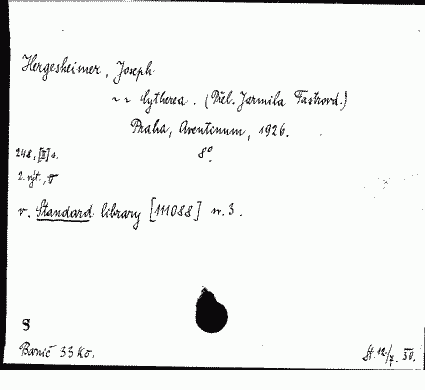 Hergesheimer, Joseph
~ ~ Cytherea. (Přel. Jarmila Fastrová.)
Praha, Aventinum, 1926.
248, [II] s. 8°.
2. výt.,
v. Standard library [111088] nr. 3.
S
Barvič 33 Kč.
St. 12/7. 30.